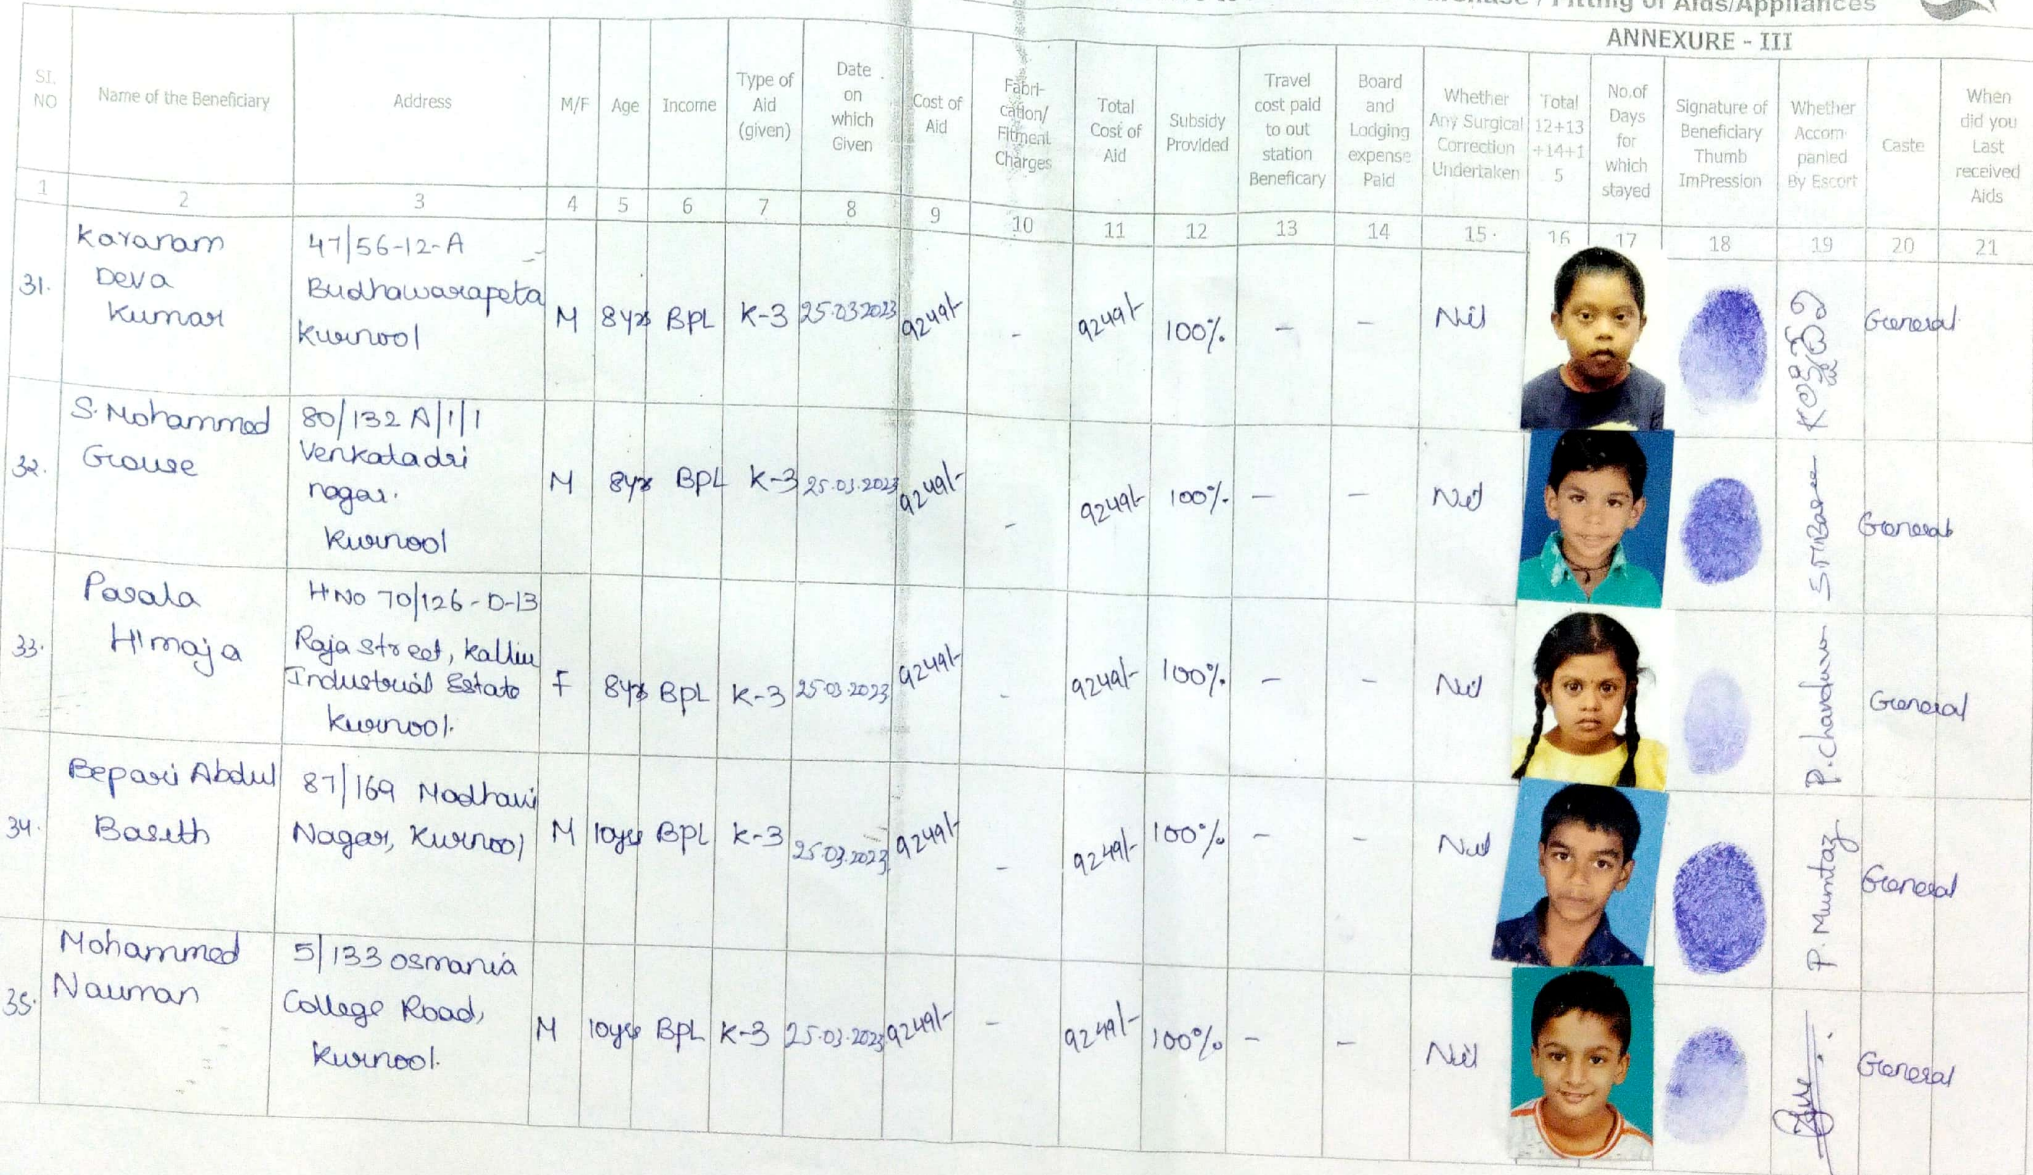 Fitting of Aids/Appliances
ANNEXURE - III
SI. NO
Name of the Beneficiary
Address
M/F
Age
Income
Type of Aid (given)
Date on which Given
Cost of Aid
Fabri-cation/ Fitment Charges
Total Cost of Aid
Subsidy Provided
Travel cost paid to out station Beneficary
Board and Lodging expense Paid
Whether Any Surgical Correction Undertaken
Total 12+13 +14+1 5
No.of Days for which stayed
Signature of Beneficiary Thumb ImPression
Whether Accom panied By Escort
Caste
When did you Last received Aids
1 2 3 4 5 6 7 8 9 10 11 12 13 14 15 16 17 18 19 20 21
31.
Karanam
Deva
Kumar
47/56-12-A
Budhawarapeta
Kurnool
M 8yrs BPL K-3 25.03.2023 9249/- - 9249/- 100% - - Nil
General
32.
S. Mohammed
Grouse
80/132 A/1/1
Venkatadri
nagar.
Kurnool
M 8yrs BPL K-3 25.03.2023 9249/- - 9249/- 100% - - Nil
General
33.
Pasala
Himaja
H.No 70/126-D-13
Raja street, Kallur
Industrial Estate
Kurnool.
F 8yrs BPL K-3 25.03.2023 9249/- - 9249/- 100% - - Nil
P. chandu
General
34.
Bepari Abdul
Basith
87/169 Madhavi
Nagar, Kurnool
M 10yrs BPL K-3 25.03.2023 9249/- - 9249/- 100% - - Nil
P. Mumtaz
General
35.
Mohammed
Nauman
5/133 osmania
College Road,
Kurnool.
M 10yrs BPL K-3 25.03.2023 9249/- - 9249/- 100% - - Nil
General